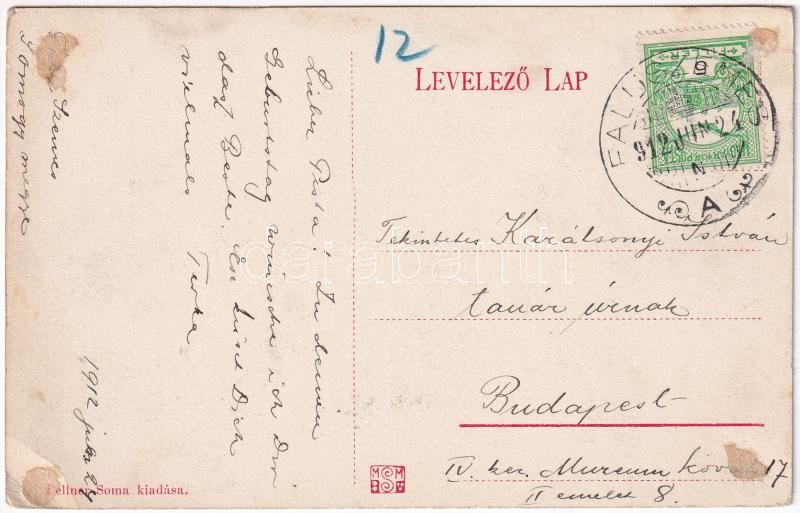 12
LEVELEZŐ LAP
FILLÉR
912 JUN 24
N
A
Tekintetes Karátsonyi István
tanár úrnak
Budapest
IV. ker. Muzeum körút 17
II emelet 8.
Lieber Pista! Zu deinem
Geburtstag wünsche ich Dir
das Beste. Es küsst Dich
vielmals
Terka
Szemes
Somogy megye
1912 julis 24
Fellner Soma kiadása.
MSM
darabanth